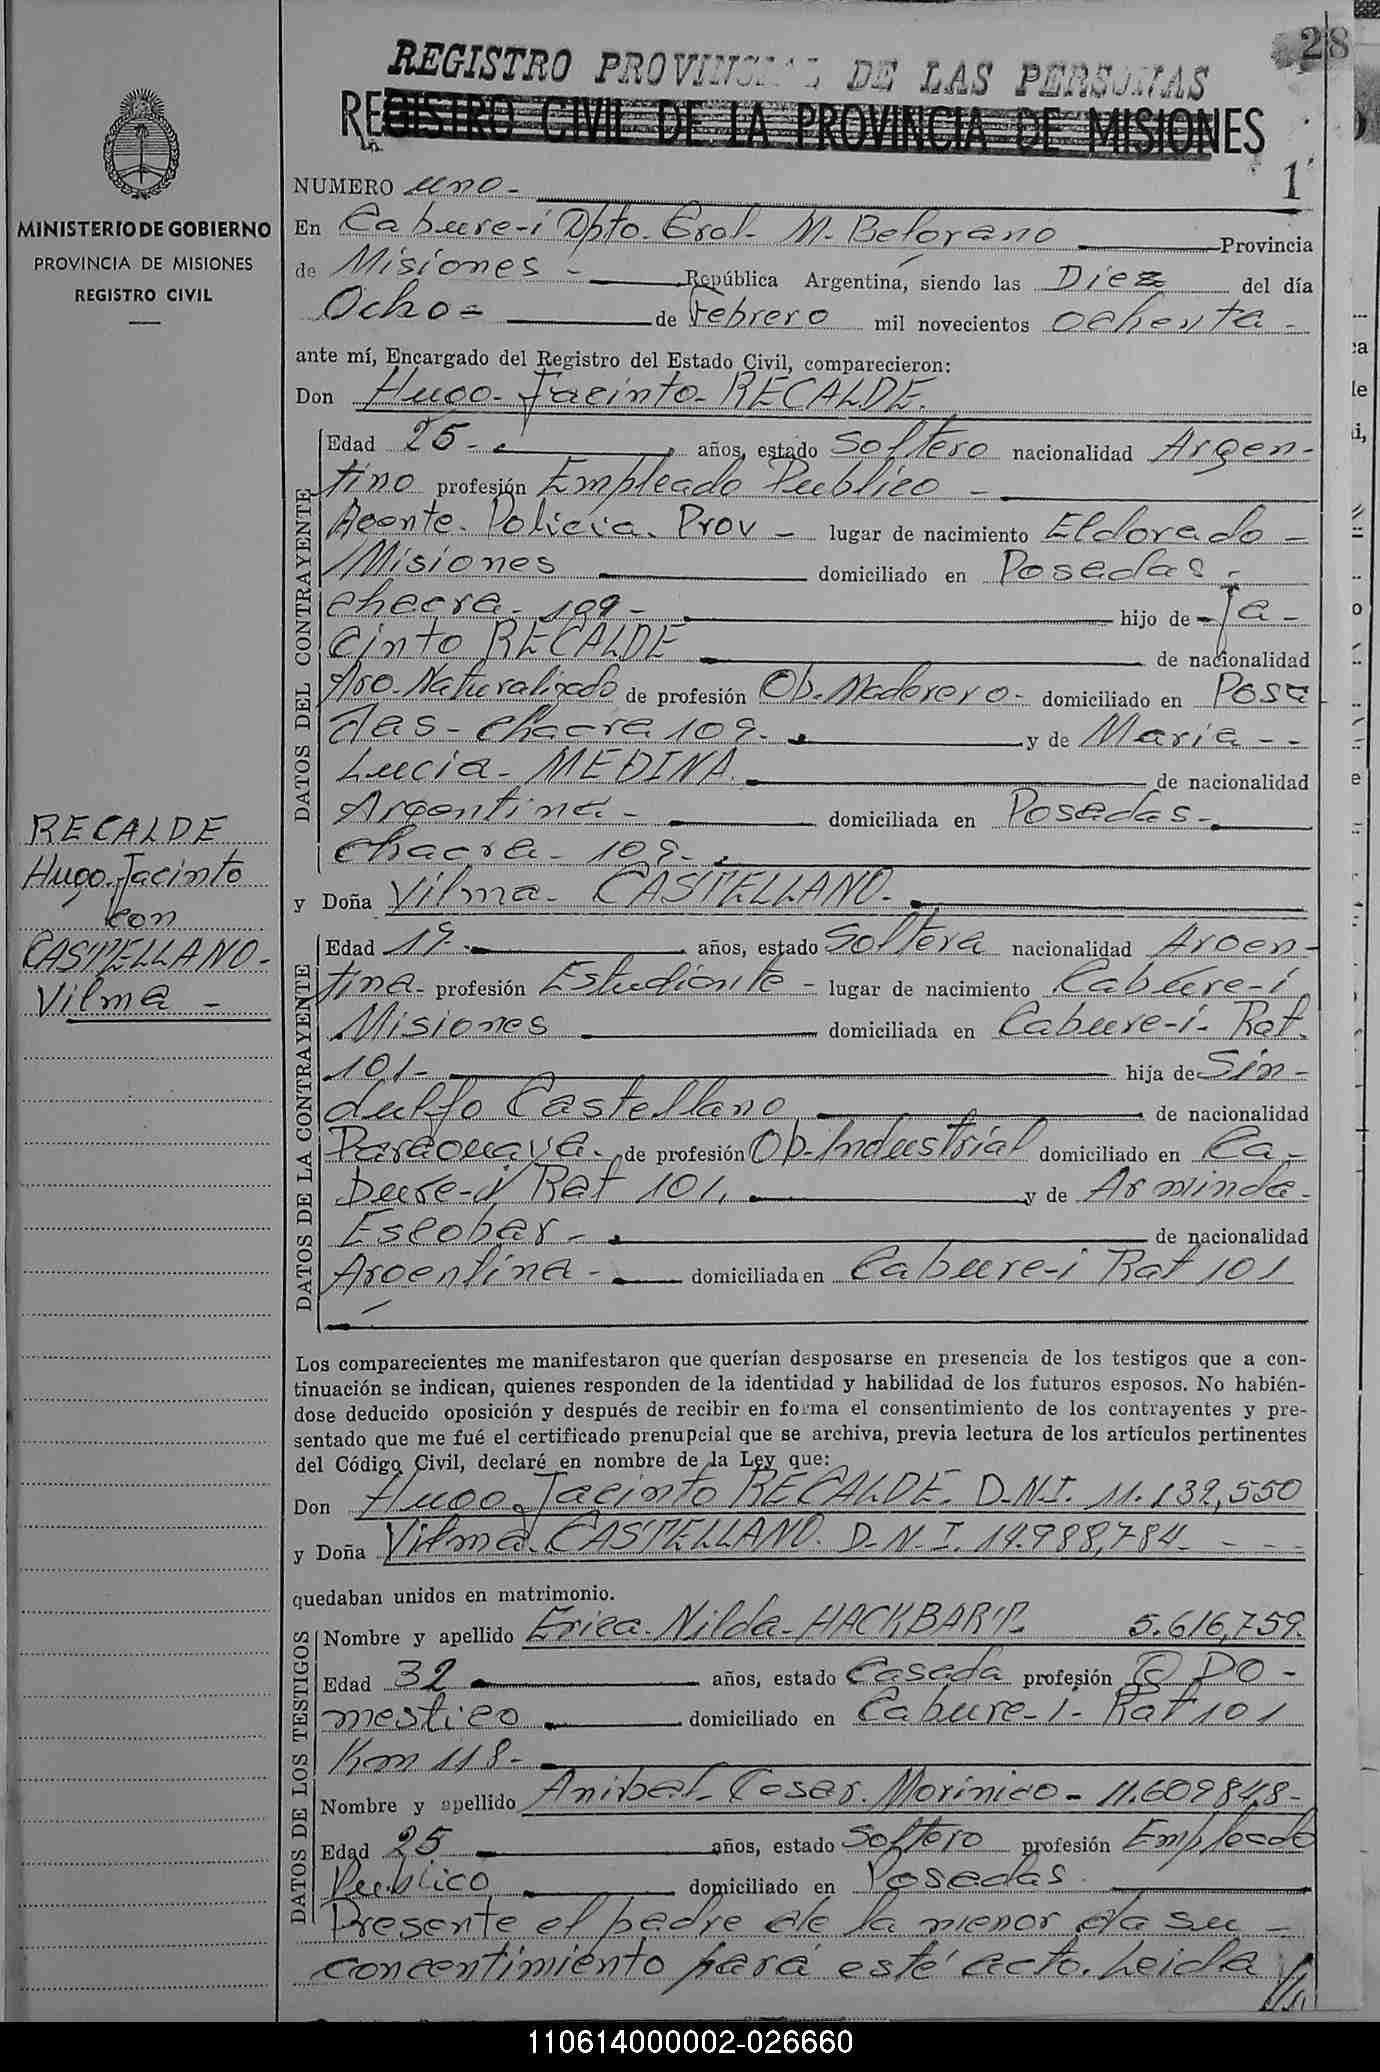 28
REGISTRO PROVINCIAL DE LAS PERSONAS
REGISTRO CIVIL DE LA PROVINCIA DE MISIONES
1
MINISTERIO DE GOBIERNO
PROVINCIA DE MISIONES
REGISTRO CIVIL
RECALDE
Hugo-Jacinto
con
CASTELLANO-
Vilma -
NUMERO uno-
En Cabure-i Dpto. Gral- M. Belgrano Provincia
de Misiones - República Argentina, siendo las Diez del día
Ocho- de Febrero mil novecientos ochenta-
ante mí, Encargado del Registro del Estado Civil, comparecieron:
Don Hugo-Jacinto-RECALDE.
DATOS DEL CONTRAYENTE
Edad 25- años, estado Soltero nacionalidad Argen-
tino profesión Empleado Publico -
Agente. Policia. Prov - lugar de nacimiento Eldorado-
Misiones domiciliado en Posadas-
chacra-109- hijo de -Ja-
cinto RECALDE de nacionalidad
Arg-Naturalizado de profesión Ob-Maderero- domiciliado en Posa
das-chacra 109- y de Maria--
Lucia-MEDINA. de nacionalidad
Argentina- domiciliada en Posadas-
chacra-109-
y Doña Vilma-CASTELLANO-
DATOS DE LA CONTRAYENTE
Edad 19- años, estado Soltera nacionalidad Argen-
tina- profesión Estudiante- lugar de nacimiento Cabure-i
Misiones domiciliada en Cabure-i-Rat.
101- hija de Sin-
dulfo Castellano de nacionalidad
Paraguaya- de profesión Ob-Industrial domiciliado en Ca-
bure-i Rat 101. y de Arminda-
Escobar- de nacionalidad
Argentina- domiciliada en Cabure-i Rat 101
Los comparecientes me manifestaron que querían desposarse en presencia de los testigos que a con-
tinuación se indican, quienes responden de la identidad y habilidad de los futuros esposos. No habién-
dose deducido oposición y después de recibir en forma el consentimiento de los contrayentes y pre-
sentado que me fué el certificado prenupcial que se archiva, previa lectura de los artículos pertinentes
del Código Civil, declaré en nombre de la Ley que:
Don Hugo-Jacinto RECALDE. D-N-I. 11.139,550
y Doña Vilma-CASTELLANO. D-N-I. 14.988,784- - - -
quedaban unidos en matrimonio.
DATOS DE LOS TESTIGOS
Nombre y apellido Erica-Nilda-HACKBART- 5.616,759.
Edad 32 años, estado Casada profesión Q DO-
mestico domiciliado en Cabure-i-Rat 101
Km 118-
Nombre y apellido Anibal-Cesar. Morinico- 11.609848-
Edad 25 años, estado Soltero profesión Empleado
Publico domiciliado en Posadas
Presente el padre de la menor da su-
concentimiento para esté acto. Leida //
110614000002-026660